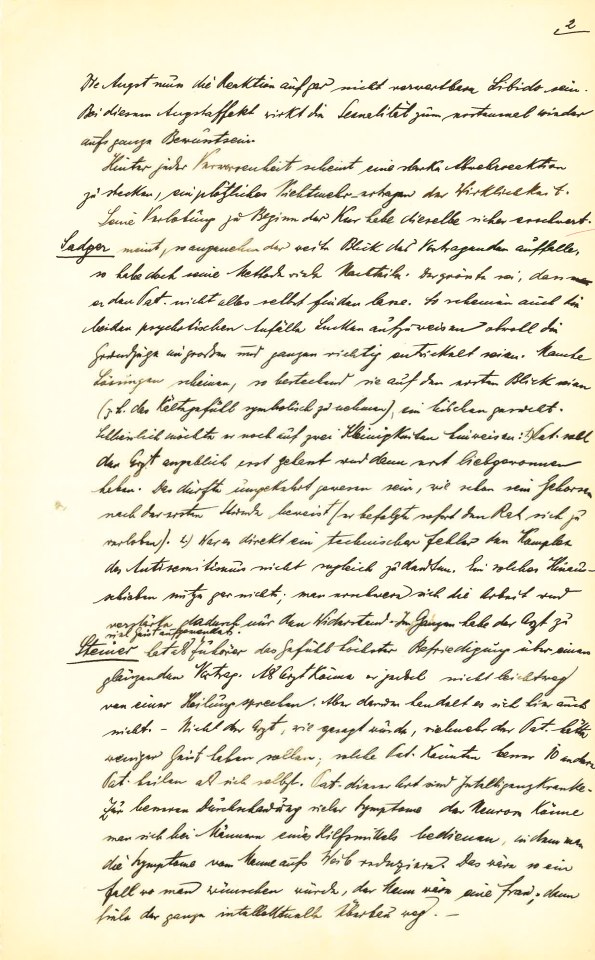 2
Die Angst nun die Reaktion auf gar nicht verwertbare Libido sein.
Bei diesem Angstaffekt wirkt die Sexualität zum erstenmal wieder
aufs ganze Bewußtsein.
Hinter jeder Verworrenheit scheint eine starke Abwehrreaktion
zu stecken, ein plötzliches Nichtmehr-ertragen der Wirklichkeit.
Seine Verlobung zu Beginn der Kur habe dieselbe sicher erschwert.
Sadger meint, so angenehm der weite Blick des Vortragenden auffalle,
so habe doch seine Methode viele Nachteile. Der größte sei, dass
er den Pat. nicht alles selbst finden lerne. So scheinen auch die
beiden psychotischen Anfälle Lücken aufzuweisen obwoll die
Grundzüge im großen und ganzen richtig entwickelt seien. Manche
Lösungen scheinen, so bestechend sie auf den ersten Blick seien
(z.b. das Kältegefühl symbolisch zu nehmen), ein bischen gewagt.
Schließlich möchte er noch auf zwei Kleinigkeiten hinweisen: 1) Pat. soll
den Arzt angeblich erst gelernt und dann erst liebgewonnen
haben. Das dürfte umgekehrt gewesen sein, wie schon sein Gehorsam
nach der ersten Stunde beweist (er befolgte sofort den Rat sich zu
verloben). 2) War es direkt ein technischer Fehler den Komplex
des Antisemitismus nicht sogleich zu deuten. Ein solches Hinaus-
schieben nütze gar nichts; man erschwere sich die Arbeit und
verstärke dadurch nur den Widerstand. Im Ganzen habe der Arzt zu
viel Geist aufgewendet.
Steiner hat als Zuhörer das Gefühl höchster Befriedigung über einen
glänzenden Vortrag. Als Arzt könne er jedoch nicht leichtweg
von einer Heilung sprechen. Aber darum handelt es sich hier auch
nicht. – Nicht der Arzt, wie gesagt würde, vielmehr der Pat. hätte
weniger Geist haben sollen; solche Pat. könnten besser 10 andere
Pat. heilen als sich selbst. Pat. dieser Art sind Intelligenzkranke.
Zur besseren Durchschauung vieler Symptome der Neurose könne
man sich bei Männern eines Hilfsmittels bedienen, indem man
die Symptome vom Manne aufs Weib reduziere. Das wäre so ein
Fall wo man wünschen würde, der Mann wäre eine Frau; dann
fiele der ganze intellektuelle Überbau weg. –